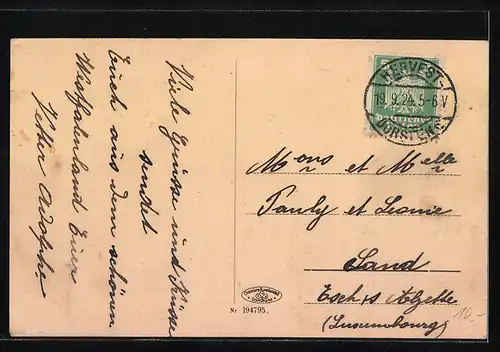 Viele Grüsse und Küsse
sendet
Euch aus dem schönen
Westfalenland Euer
Vetter Adolphe
HERVEST-
19.9.24.5-6V
DORSTEN
Mons et Melle
Pauly et Leonie
Sand
Esch s Alzette
(Luxembourg)
16.-
Nr 194795.